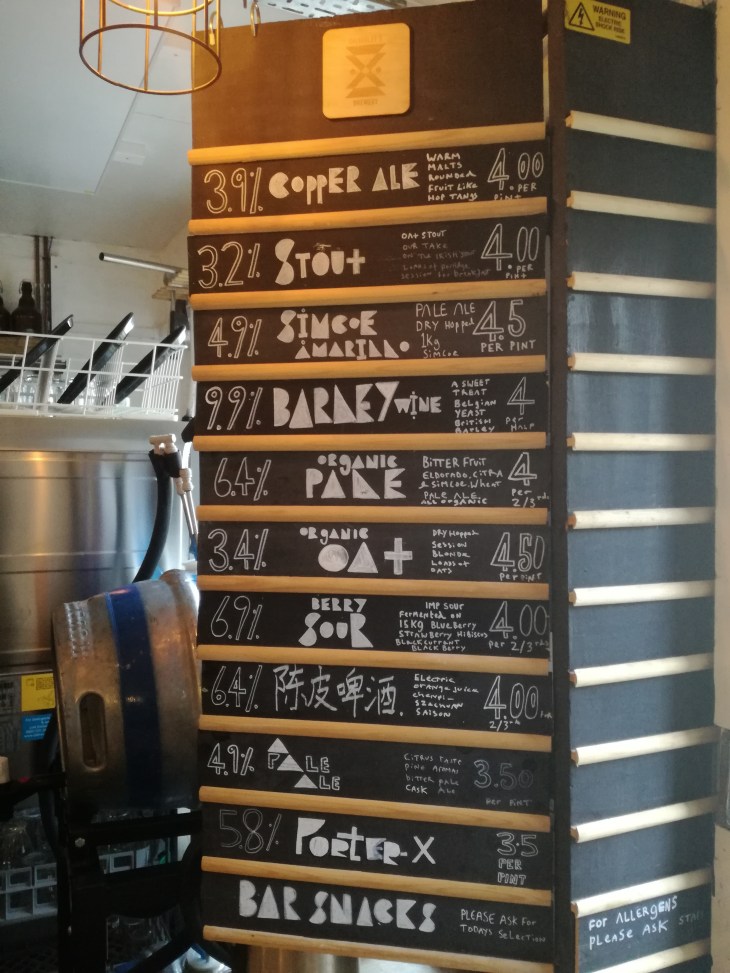 WARNING
ELECTRIC
SHOCK RISK
BREWERY
3.9% COPPER ALE
WARM
MALTS
ROUNDED
FRUIT LIKE
HOP TANGS
4.00
PER
PINT
3.2% STOUT
OAT STOUT
OUR TAKE
ON THE IRISH
LOADS OF PORRIDGE
SESSION FOR BREAKFAST
4.00
PER
PINT
4.9% SIMCOE
AMARILLO
PALE ALE
DRY HOPPED
1KG
SIMCOE
4.5
PER PINT
9.9% BARLEY WINE
A SWEET
TREAT
BELGIAN
YEAST
BRITISH
BARLEY
4
PER
HALF
6.4% ORGANIC
PALE
BITTER FRUIT
ELDORADO, CITRA
& SIMCOE. WHEAT
PALE ALE.
ALL ORGANIC
4
PER
2/3rds
3.4% ORGANIC
OAT
DRY HOPPED
SESSION
BLONDE
LOADS OF
OATS
4.50
PER PINT
6.9% BERRY
SOUR
IMP SOUR
FERMENTED ON
15KG BLUEBERRY
STRAWBERRY HIBISCUS
BLACKCURRANT
BLACKBERRY
4.00
PER 2/3rds
6.4% 陈皮啤酒.
ELECTRIC
ORANGE JUICE
CHENPI-
SZECHUAN
SAISON
4.00
2/3rds
4.9% PALE
ALE
CITRUS TASTE
PINE AROMAS
BITTER PALE
CASK ALE
3.50
PER PINT
5.8% PORTER-X
3.5
PER
PINT
BAR SNACKS
PLEASE ASK FOR
TODAYS SELECTION
FOR ALLERGENS
PLEASE ASK STAFF